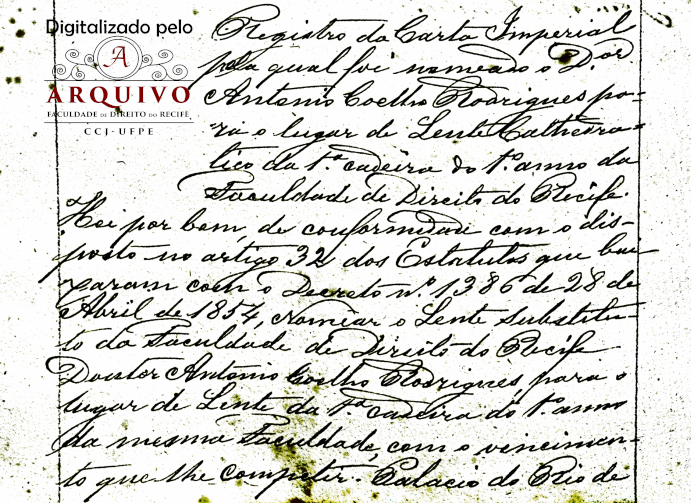 Digitalizado pelo
A
ARQUIVO
FACULDADE DE DIREITO DO RECIFE
CCJ-UFPE
Registro da Carta Imperial
pela qual foi nomeado o D.or
Antonio Coelho Rodrigues pa-
ra o lugar de Lente Cathedra-
tico da 1ª cadeira do 1º anno da
Faculdade de Direito do Recife.
Hei por bem, de conformidade com o dis-
posto no artigo 32 dos Estatutos que bai-
xaram com o Decreto nº 1386 de 28 de
Abril de 1854, nomear o Lente substitu-
to da Faculdade de Direito do Recife
Doutor Antonio Coelho Rodrigues para o
lugar de Lente da 1ª cadeira do 1º anno
da mesma Faculdade, com o vencimen-
to que lhe competir. Palacio do Rio de